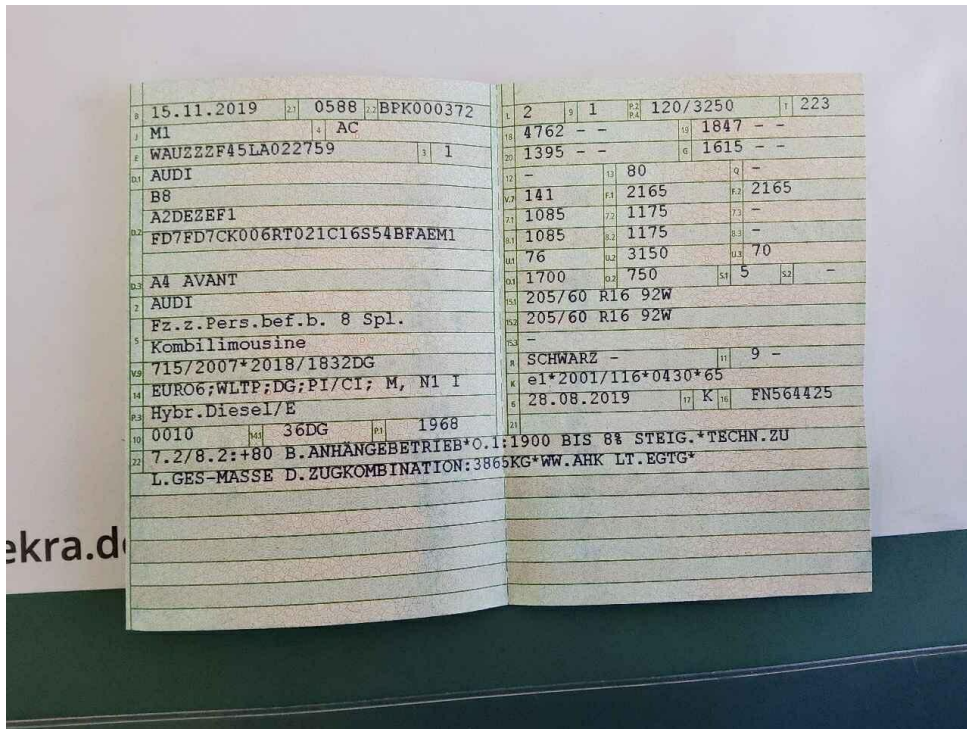 B 15.11.2019 2.1 0588 2.2 BPK000372
J M1 4 AC
E WAUZZZF45LA022759 3 1
D.1 AUDI
B8
A2DEZEF1
D.2 FD7FD7CK006RT021C16S54BFAEM1
D.3 A4 AVANT
2 AUDI
5 Fz.z.Pers.bef.b. 8 Spl.
Kombilimousine
V.9 715/2007*2018/1832DG
14 EURO6;WLTP;DG;PI/CI; M, N1 I
P.3 Hybr.Diesel/E
10 0010 14.1 36DG P.1 1968
22 7.2/8.2:+80 B.ANHÄNGEBETRIEB*O.1:1900 BIS 8% STEIG.*TECHN.ZU
L.GES-MASSE D.ZUGKOMBINATION:3865KG*WW.AHK LT.EGTG*
L 2 9 1 P.2 P.4 120/3250 T 223
18 4762 - - 19 1847 - -
20 1395 - - G 1615 - -
12 - 13 80 Q -
V.7 141 F.1 2165 F.2 2165
7.1 1085 7.2 1175 7.3 -
8.1 1085 8.2 1175 8.3 -
U.1 76 U.2 3150 U.3 70
O.1 1700 O.2 750 S.1 5 S.2 -
15.1 205/60 R16 92W
15.2 205/60 R16 92W
15.3 -
R SCHWARZ - 11 9 -
K e1*2001/116*0430*65
6 28.08.2019 17 K 16 FN564425
21
ekra.de